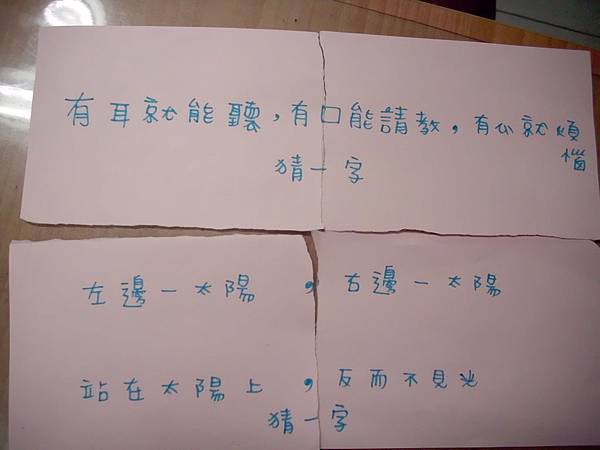 有耳就能聽，有口能請教，有心就煩
惱
猜一字
左邊一太陽，右邊一太陽
站在太陽上，反而不見光
猜一字